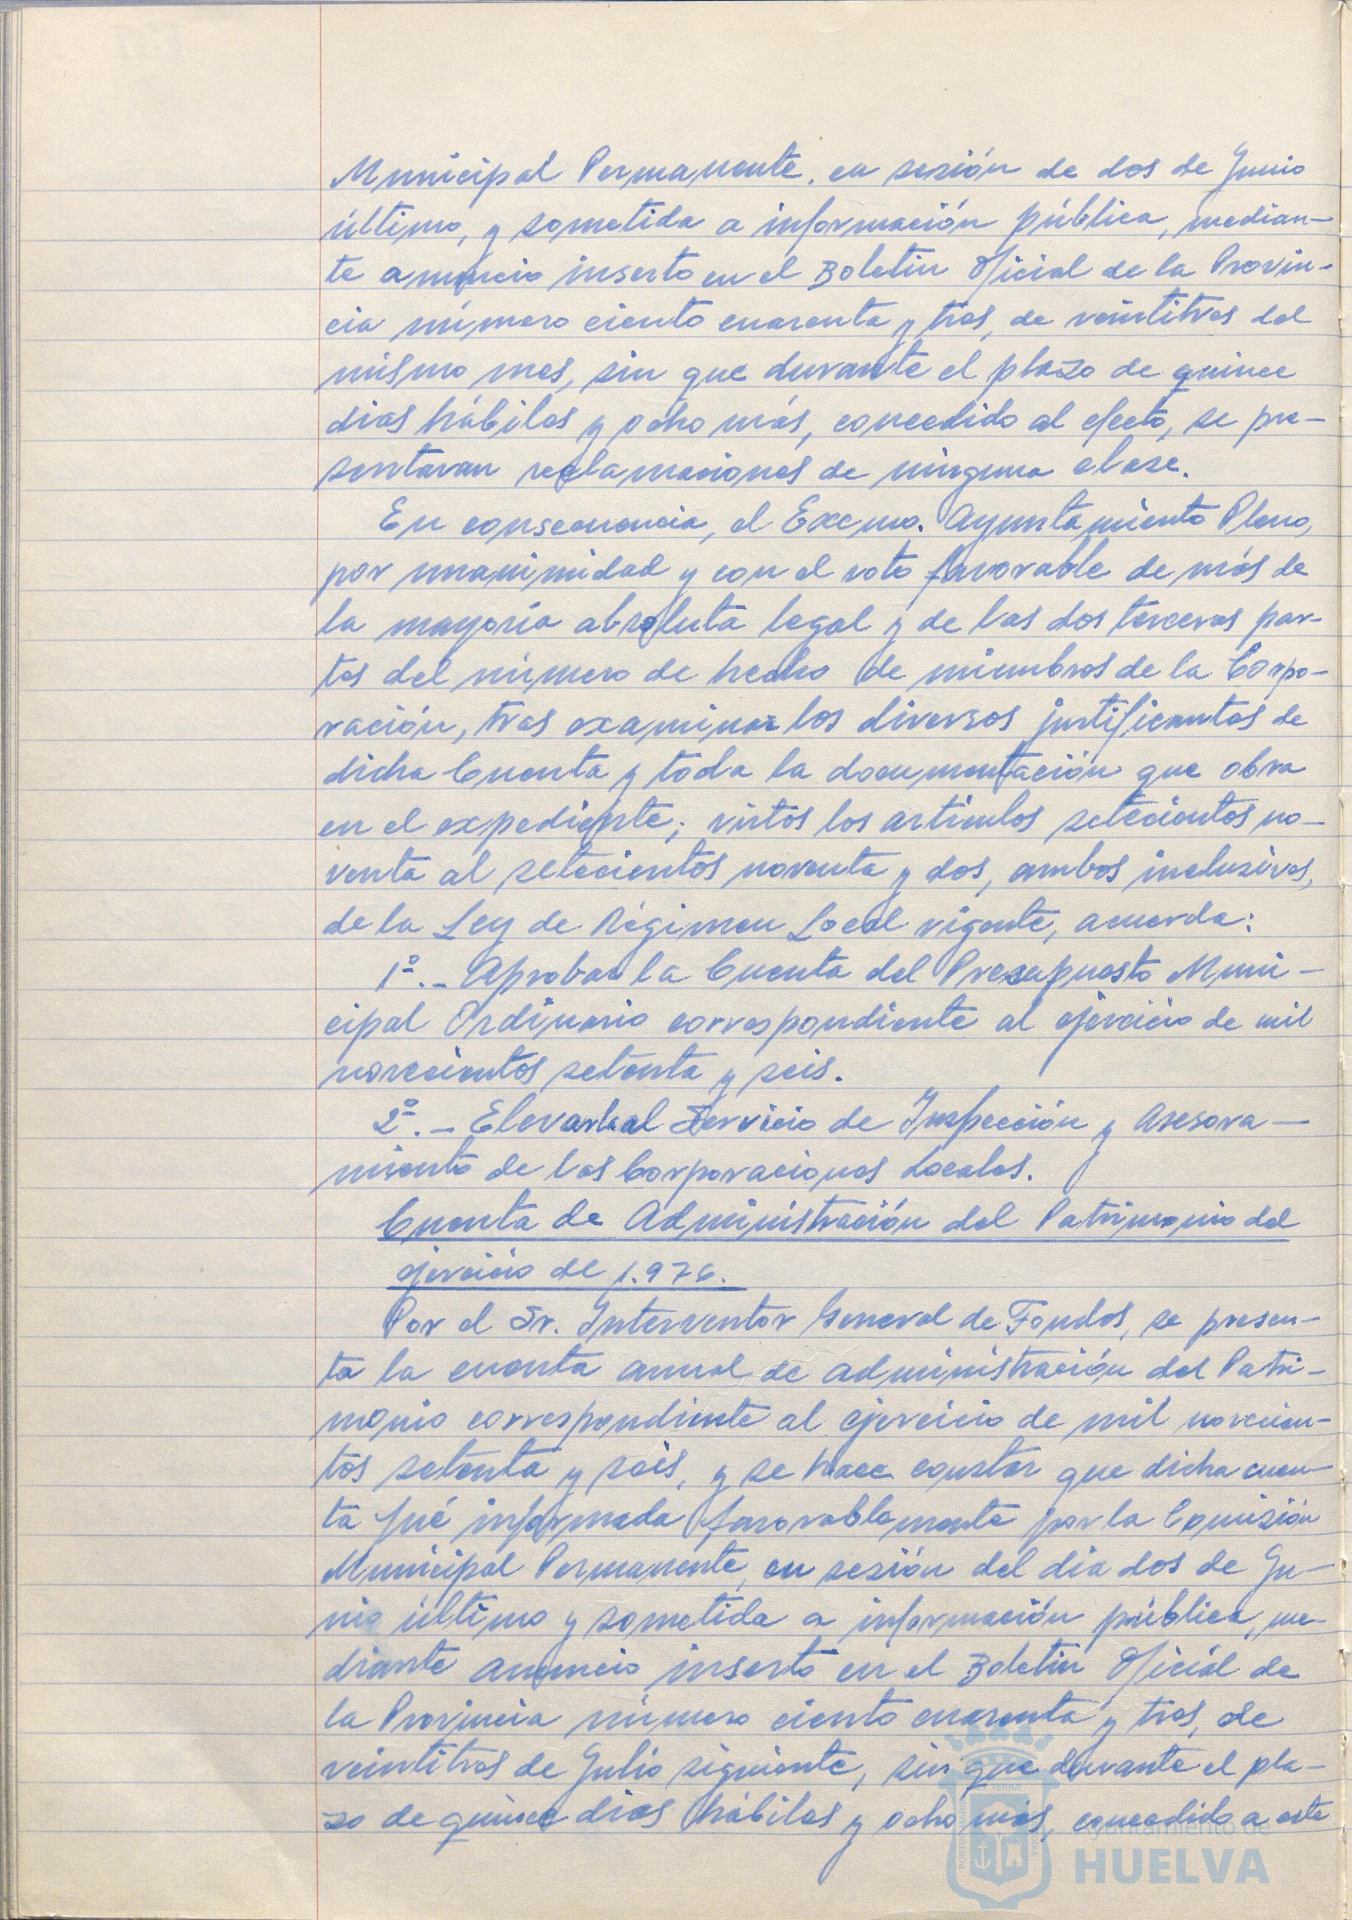 Municipal Permanente, en sesión de dos de Junio
último, y sometida a información pública, median-
te anuncio inserto en el Boletin Oficial de la Provin-
cia número ciento cuarenta y tres, de veintitres del
mismo mes, sin que durante el plazo de quince
dias hábiles y ocho más, concedido al efecto, se pre-
sentaran reclamaciones de ninguna clase.
En consecuencia, el Excmo. Ayuntamiento Pleno,
por unanimidad y con el voto favorable de más de
la mayoría absoluta legal y de las dos terceras par-
tes del número de hecho de miembros de la Corpo-
ración, tras examinar los diversos justificantes de
dicha Cuenta y toda la documentación que obra
en el expediente; vistos los articulos setecientos no-
venta al setecientos noventa y dos, ambos inclusives,
de la Ley de Régimen Local vigente, acuerda:
1º.- Aprobar la Cuenta del Presupuesto Muni-
cipal Ordinario correspondiente al ejercicio de mil
novecientos setenta y seis.
2º.- Elevarla al Servicio de Inspección y Asesora-
miento de las Corporaciones Locales.
Cuenta de Administración del Patrimonio del
ejercicio de 1.976.
Por el Sr. Interventor General de Fondos, se presen-
ta la cuenta anual de administración del Patri-
monio correspondiente al ejercicio de mil novecien-
tos setenta y seis, y se hace constar que dicha cuen-
ta fué informada favorablemente por la Comisión
Municipal Permanente, en sesión del dia dos de Ju-
nio último y sometida a información pública, me-
diante anuncio inserto en el Boletin Oficial de
la Provincia número ciento cuarenta y tres, de
veintitres de Julio siguiente, sin que durante el pla-
zo de quince dias hábiles y ocho más, concedido a este
Ayuntamiento de
HUELVA